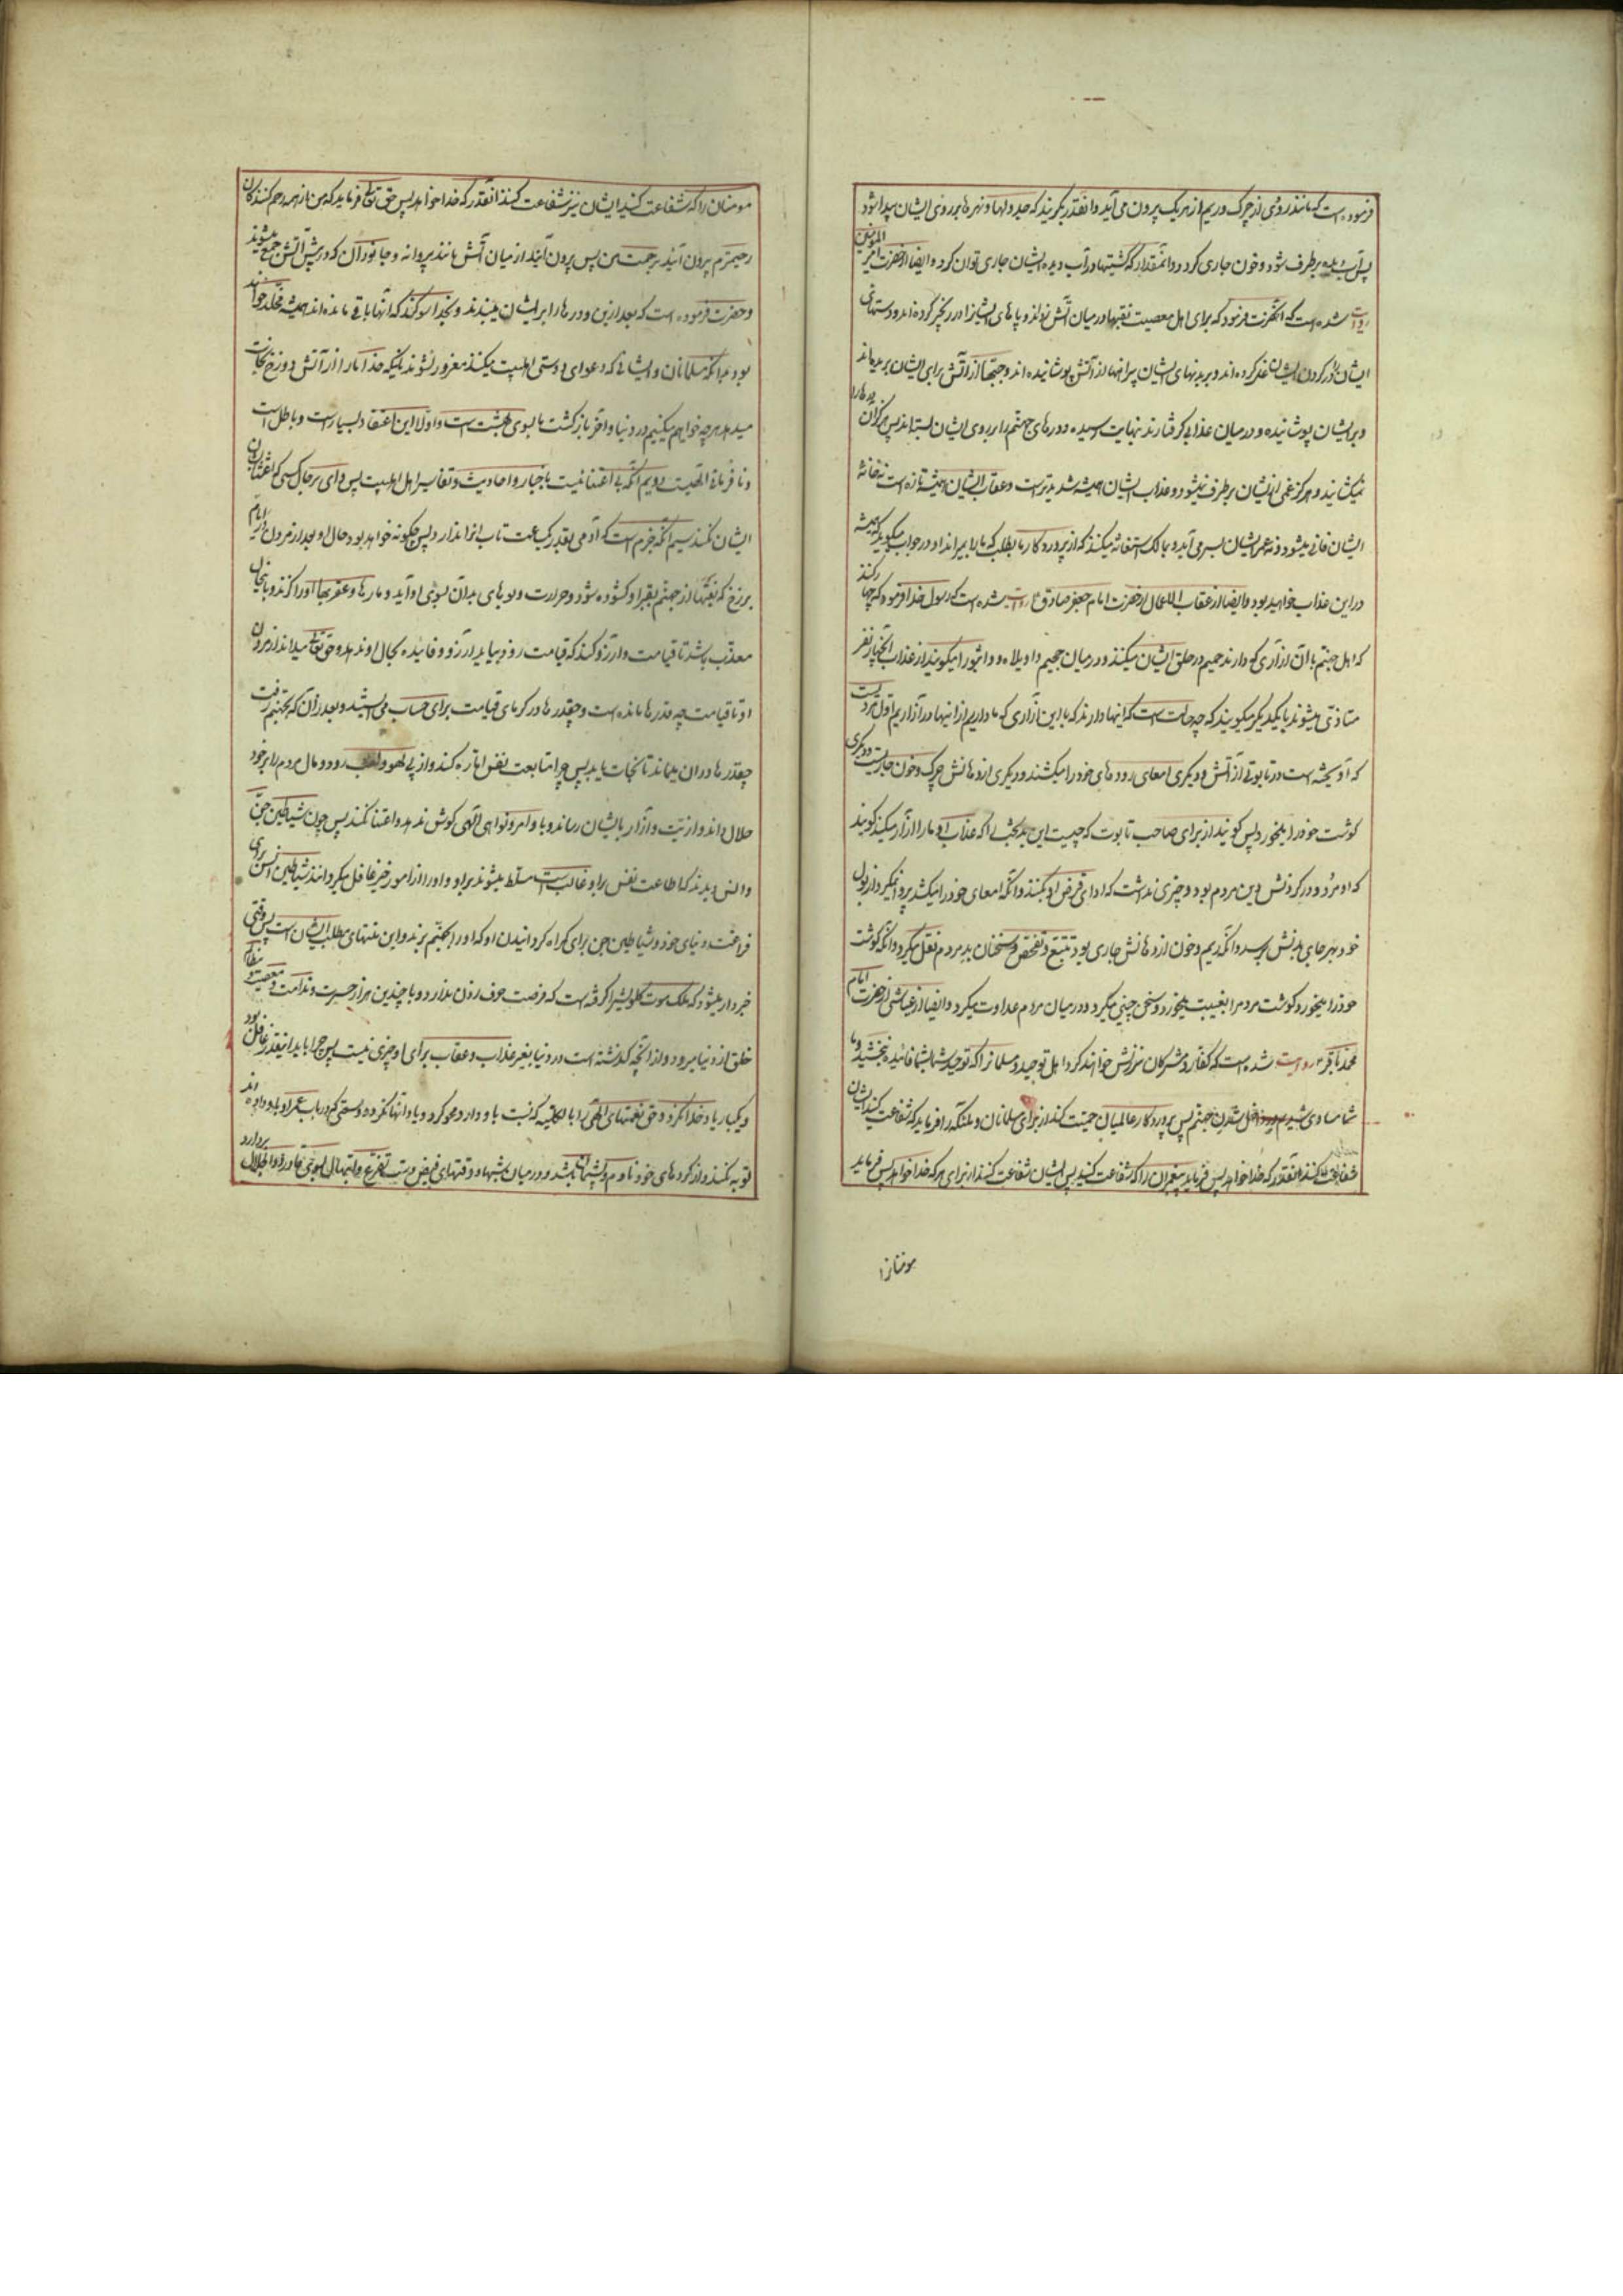 فرموده است که مانند رودی از چرک و ریم از هریک بیرون می آید و انقدر بگریند که جدولها و نهرها بر روی ایشان پیدا شود
پس آب دیده برطرف شود و خون جاری گردد و انمقدار که کشتیها در آب دیده ایشان جاری توان کرد و ایضا از حضرت امیر المومنین
روایت شده است که آنحضرت فرمود که برای اهل معصیت نقبها در میان آتش زده اند و پاهای ایشانرا در زنجیر کرده اند و دستهای
ایشان را در گردن ایشان غل کرده اند و بر بدنهای ایشان پیراهنها از آتش پوشانیده اند و جبها از آتش برای ایشان بریده اند
و بر ایشان پوشانیده و در میان عذابی گرفتارند نهایت رسیده و درهای جهنم را بر روی ایشان بسته اند پس هرگز آن درها را
نمیگشایند و هرگز غمی از ایشان برطرف نمیشود و عذاب ایشان همیشه شدید تر است و عقاب ایشان همیشه تازه است نه خانه
ایشان فانی میشود و نه عمر ایشان بسر می آید و بمالک استغاثه میکنند که از پروردگار ما بطلب که ما را بمیراند او در جواب میگوید که همیشه
در این عذاب خواهید بود و ایضا از عقاب الاعمال از حضرت امام جعفر صادق ع روایت شده است که رسول خدا فرمود که چهار کسند
که اهل جهنم با آن آزاری که دارند حمیم در حلق ایشان میکنند و در میان جحیم واویلاه و واثبورا میگویند از عذاب آن چهار نفر
متاذی میشوند با یکدیگر میگویند که چه حالت است که اینها دارند که با این آزاری که ما داریم از اینها در آزاریم اول مردیست
که آویخته است در تابوتی از آتش و دیگری امعای رودهای خود را میکشند و دیگری از دهانش چرک و خون جاریست و دیگری
گوشت خود را میخورد پس گویند از برای صاحب تابوت که چیست این بدبخت را که عذاب او ما را آزار میکند گویند
که او مرد و در گردنش دین مردم بود و چیزی نداشت که ادای قرض او بکنند و آنکه امعای خود را میکشد پروا نمیکرد از بول
خود بهر جای بدنش برسد و آنکه ریم و خون از دهانش جاری بود تتبع و تفحص سخنان بد مردم نقل میکرد و آنکه گوشت
خود را میخورد گوشت مردم را بغیبت میخورد و سخن چینی میکرد و در میان مردم عداوت میکرد و ایضا از عیاشی از حضرت امام
محمد باقر ع روایت شده است که کفار و مشرکان سرزنش خواهند کرد اهل توحید و مسلمانرا که توحید شما بشما فائده نبخشید و ما
شما مساوی شدیم داخل شدن جهنم پس پروردگار عالمیان حمیت کند از برای مسلمانان و ملئکه را فرماید که شفاعت کنید ایشان
شفاعت کنند آنقدر که خدا خواهد پس فرماید پیغمبران را که شفاعت کنید پس ایشان شفاعت کنند از برای هر که خدا خواهد پس فرماید
مومنانرا
مومنان را که شفاعت کنید ایشان نیز شفاعت کنند انقدر که خدا خواهد پس حق تعالی فرماید که من از همه رحم کنندگان
رحیمترم بیرون آئید برحمت من پس بیرون آیند از میان آتش مانند پروانه و جانوران که در پیش آتش جمع میشوند
و حضرت فرموده است که بعد ازین ودرها را بر ایشان میبندند و بخدا سوگند که آنها باقی مانده اند همیشه مخلد خواهند
بود بدانکه مسلمانان و ایشانی که دعوای دوستی اهلبیت میکنند مغرور نشوند بانکه خدا ما را از آتش دوزخ نجات
میدهد هر چه خواهم میکنیم در دنیا و آخر بازگشت ما بسوی بهشت است و اولا این اعتقاد بسیار است و باطل است
و نافرمانی الهیست دویم آنکه بی اعتنائیست باخبار و احادیث و تفاسیر اهل اهلبیت پس وای بر حال کسی که اعتنا بآن
ایشان نکند سیم آنکه جزم است که آدمی بقدر یکساعت تاب انرا ندارد پس چگونه خواهد بود حال او بعد از مردن در ایام
برزخ که نقبها از جهنم بقبر او گشوده شود و حرارت و بوهای بد آن بسوی او آید و مارها و عقربها او را گزند و باینحال
معذب باشد تا قیامت و آرزو کند که قیامت زود بیاید آرزو و فایده بحال او ندهد و حق تعالی میداند از مردن
او تا قیامت چه قدرها مانده است و چقدرها در گرمای قیامت برای حساب می ایستید و بعد از آن که بجهنم رفت
چقدرها در ان بماند تا نجات یابد پس چرا متابعت نفس اماره کند و از پی لهو و لعب رود و مال مردم را بر خود
حلال داند و اذیت و آزار بایشان رساند و باوامر و نواهی الهی گوش ندهد و اعتنا نکند پس چون شیاطین جن
و انس دیدند که اطاعت نفس بر او غالب است مسلط میشوند بر او و او را از امور خیر غافل میگردانند شیاطین انس برای
فراغت دنیای خود و شیاطین جن برای گمراه گردانیدن او که او را بجهنم برند و این منتهای مطلب ایشان است پس وقتی
خبردار میشود که ملک موت گلویشرا گرفته است که فرصت حرف زدن ندارد و با چندین هزار حسرت و ندامت و معصیت و مظالم
خلق از دنیا میرود و از آنچه گذشته است در دنیا بغیر عذاب و عقاب برای او چیزی نیست پس چرا باید انقدر غافل بود
و یکبار یاد خدا نکرد و حق نعمتهای الهی را بالکلیه که نسبت باو دارد محو کرد و یاد آنها نکرده و سعی کم در باب عمر او باو داده اند
توبه نکند و از کردهای خود نادم و پشیمان نباشد و در میان شبها و وقتهای فیض دست تضرع و ابتهال بسوی قادر ذو الجلال بردارد